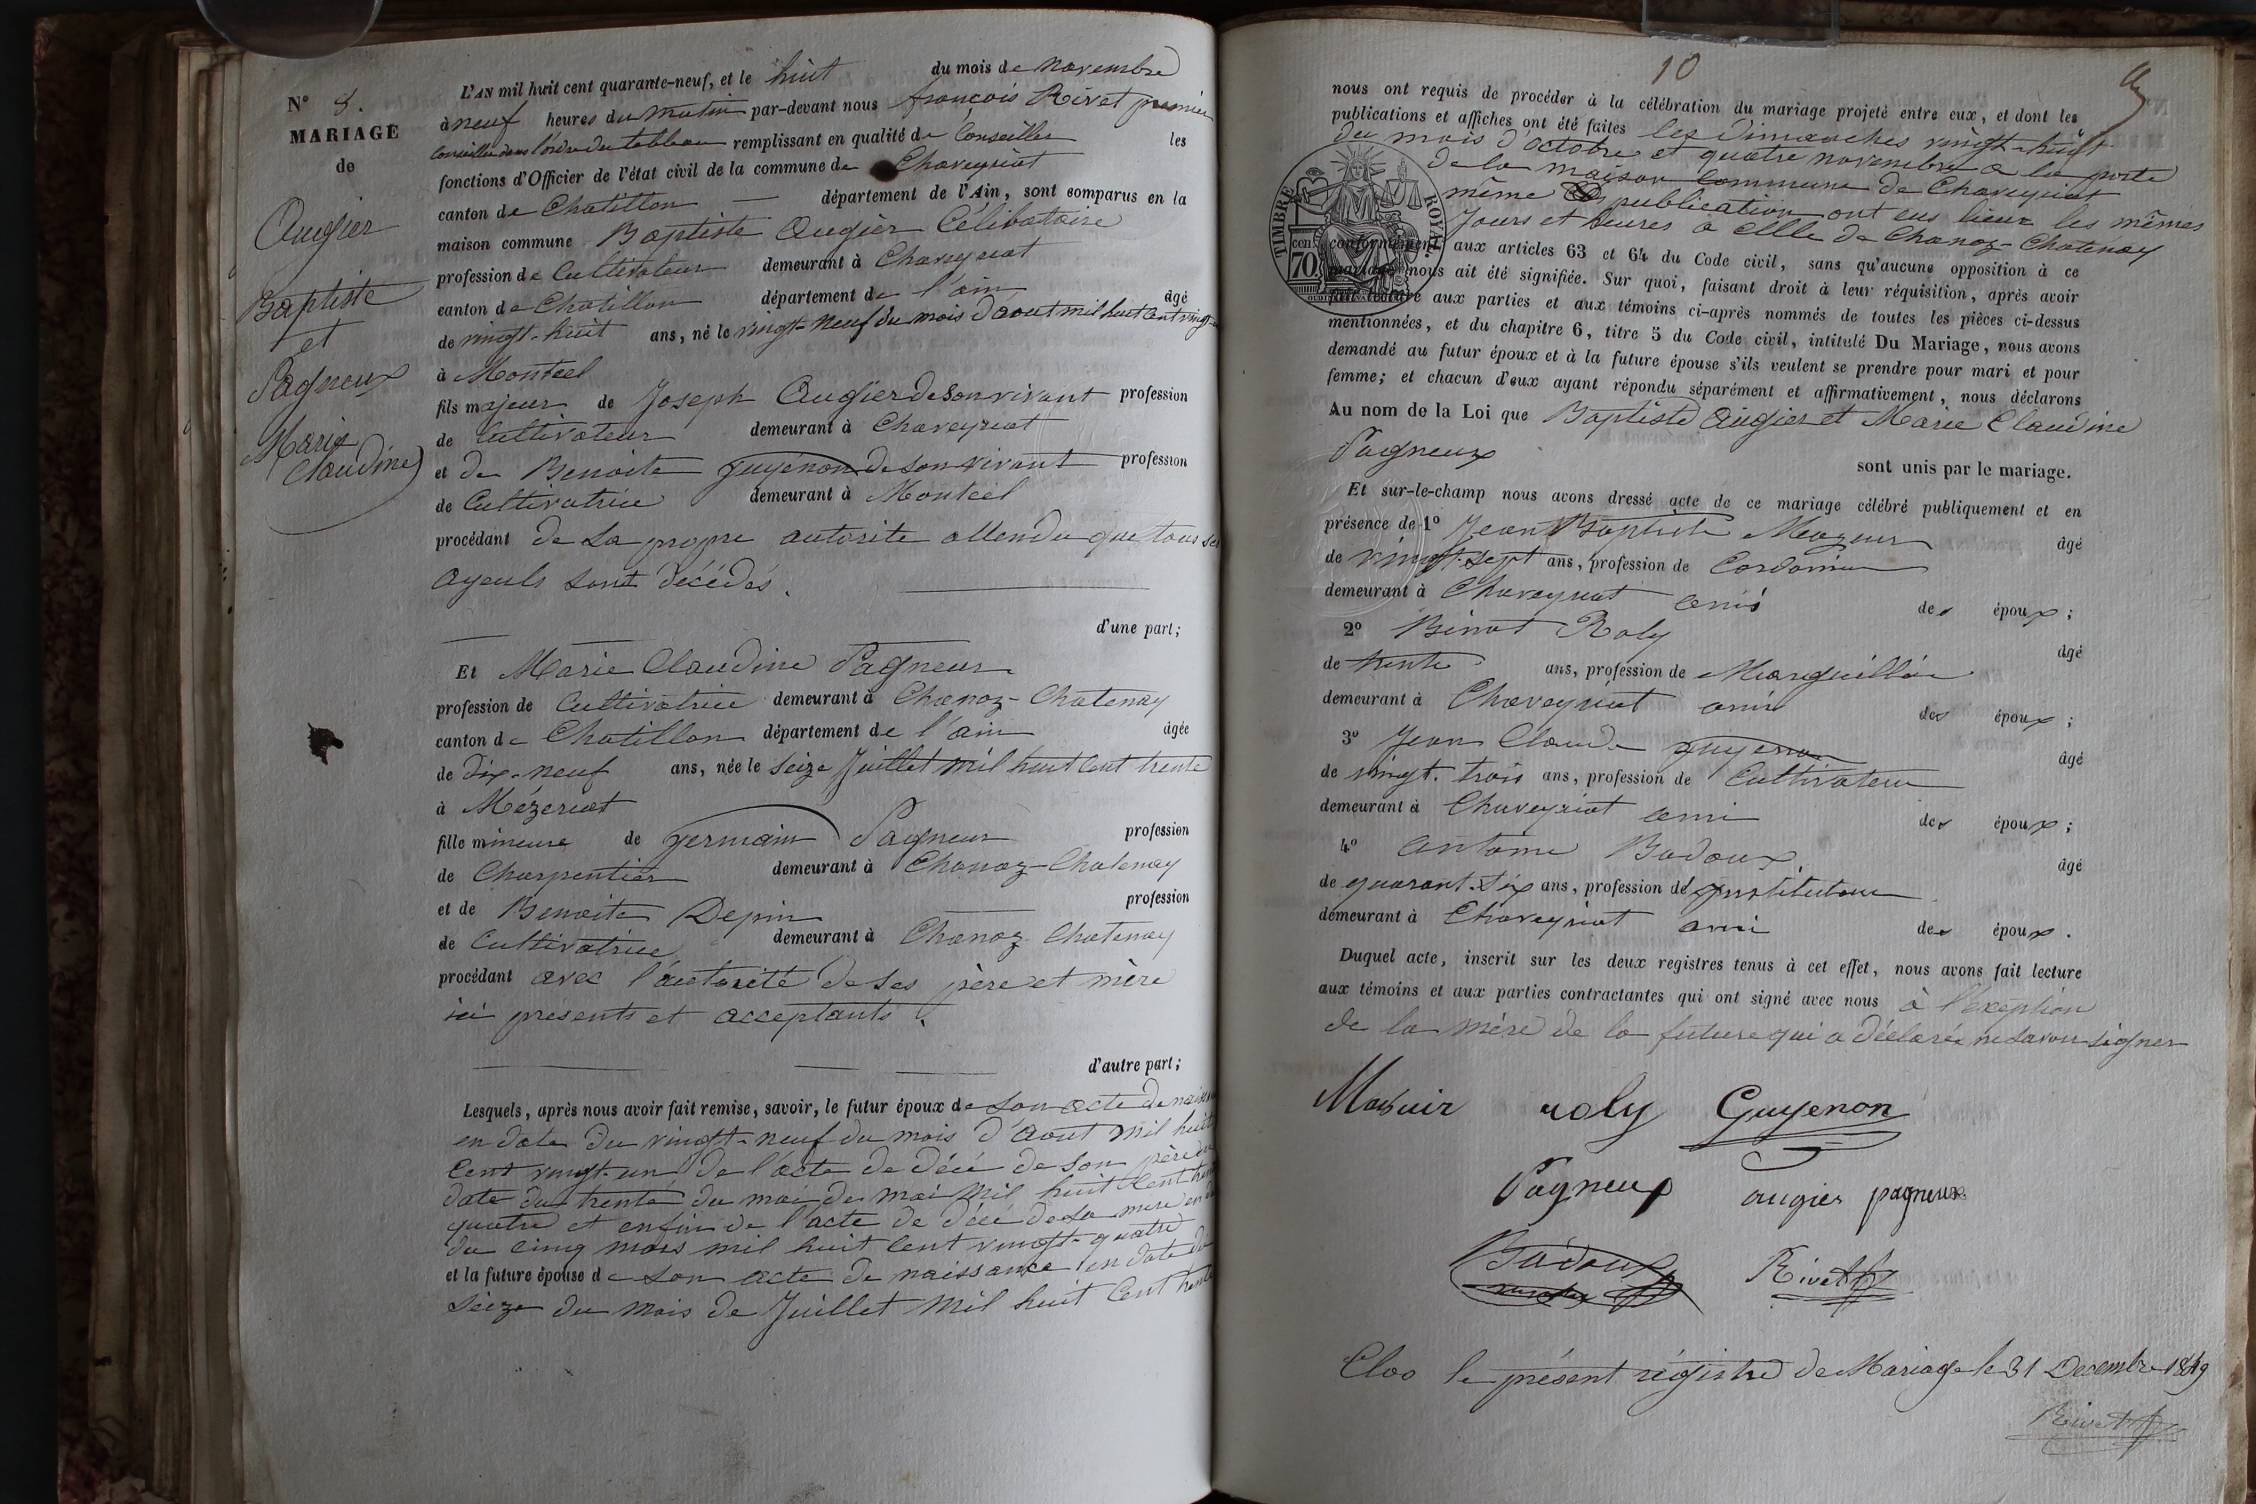 N° 8.
MARIAGE
de
Augier
Baptiste
et
Pagneux
Marie
Claudine
L'AN mil huit cent quarante-neuf, et le huit du mois de novembre
à neuf heures du matin par-devant nous françois Rivet premier
Conseiller dans l'ordre du tableau remplissant en qualité de Conseiller les
fonctions d'Officier de l'état civil de la commune de Chaveyriat
canton de Chatillon — département de l'Ain, sont comparus en la
maison commune Baptiste Augier Célibataire
profession de Cultivateur demeurant à Chaveyriat
canton de Chatillon département de l'ain âgé
de vingt-huit ans, né le vingt-neuf du mois d'aout mil huit cent vingt-
à Montcel
fils majeur de Joseph Augier de son vivant profession
de Cultivateur demeurant à Chaveyriat
et de Benoite guyénon de son vivant profession
de Cultivatrice demeurant à Montcel
procédant de sa propre autorite attendu que tous ses
ayeuls sont décédés.
d'une part;
Et Marie Claudine Pagneux
profession de Cultivatrice demeurant à Chanoz-Chatenay
canton de Chatillon département de l'ain âgée
de dix-neuf ans, née le seize Juillet mil huit cent trente
à Mézeriat
fille mineure de germain Pagneux profession
de Charpentier demeurant à Chanoz-Chatenay
et de Benoite Depin profession
de Cultivatrice demeurant à Chanoz-Chatenay
procédant avec l'autorité de ses père et mère
ici présents et acceptants.
d'autre part;
Lesquels, après nous avoir fait remise, savoir, le futur époux de son acte de
en date du vingt-neuf du mois d'aout mil huit
Cent vingt-un, de l'acte de décé de son père
date du trente du moi de mai mil huit Cent
quatre et enfin de l'acte de décé de sa mere en
du cinq mars mil huit Cent vingt-quatre
et la future épouse de son acte de naissance en date du
seize du mois de Juillet mil huit Cent trente
10
nous ont requis de procéder à la célébration du mariage projeté entre eux, et dont les
publications et affiches ont été faites les Dimanches vingt-huit
du mois d'octobre et quatre novembre a la porte
de la maison commune de Chaveyriat
même publication ont eus lieux les mêmes
Jours et heures a Celle de Chanoz-Chatenay
TIMBRE ROYAL.
70 cen
conformément aux articles 63 et 64 du Code civil, sans qu'aucune opposition à ce
mariage nous ait été signifiée. Sur quoi, faisant droit à leur réquisition, après avoir
fait lecture aux parties et aux témoins ci-après nommés de toutes les pièces ci-dessus
mentionnées, et du chapitre 6, titre 5 du Code civil, intitulé Du Mariage, nous avons
demandé au futur époux et à la future épouse s'ils veulent se prendre pour mari et pour
femme; et chacun d'eux ayant répondu séparément et affirmativement, nous déclarons
Au nom de la Loi que Baptiste Augier et Marie Claudine
Pagneux sont unis par le mariage.
Et sur-le-champ nous avons dressé acte de ce mariage célébré publiquement et en
présence de 1° Jean Baptiste Mazuir âgé
de vingt-sept ans, profession de Cordonnier
demeurant à Chaveyriat ami des époux;
2° Binot Roly âgé
de trente ans, profession de Marguillier
demeurant à Chaveyriat ami des époux;
3° Jean Claude guyenon âgé
de vingt-trois ans, profession de Cultivateur
demeurant à Chaveyriat ami des époux;
4° antoine Badoux âgé
de quarant-six ans, profession d'Instituteur
demeurant à Chaveyriat ami des époux.
Duquel acte, inscrit sur les deux registres tenus à cet effet, nous avons fait lecture
aux témoins et aux parties contractantes qui ont signé avec nous à l'exeption
de la mère de la future qui a déclarée ne savoir signer
Mazuir roly Guyenon
Pagneux augier pagneux
Badoux Rivet
Clos le présent régistre de Mariage le 31 Decembre 1849
Rivet